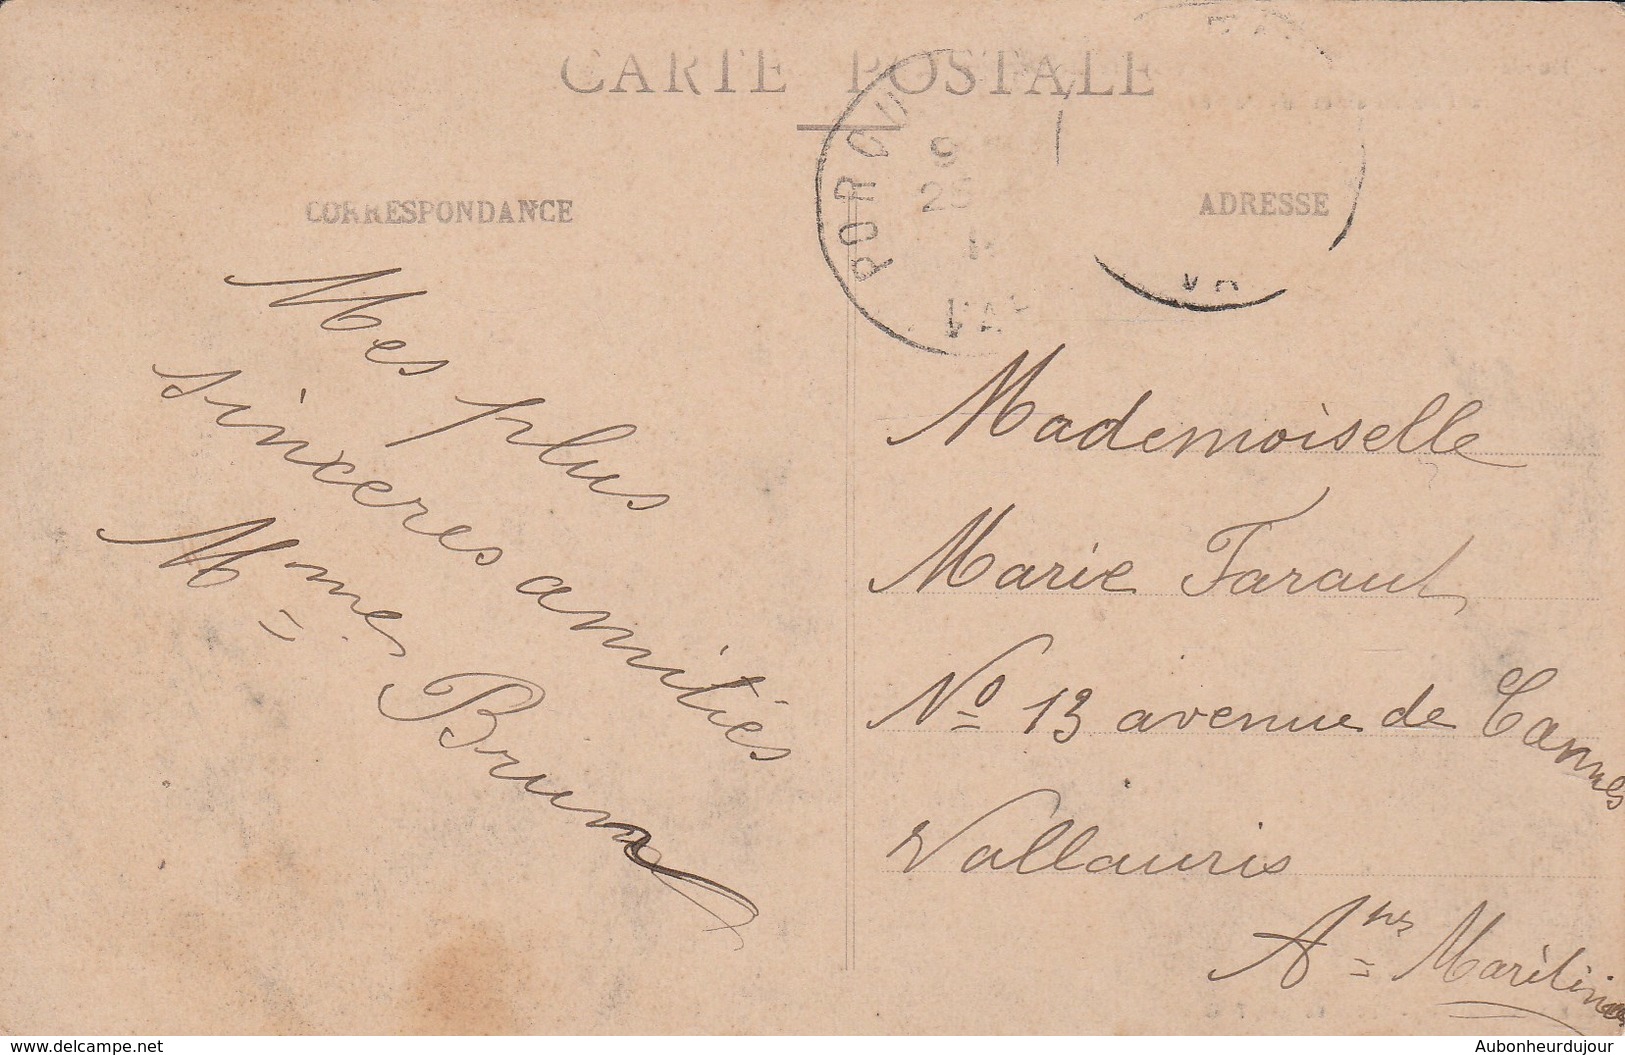 CARTE POSTALE
CORRESPONDANCE
ADRESSE
Mes plus
sincères amitiés
Mmes Brun
Mademoiselle
Marie Faraut
No 13 avenue de Cannes
Vallauris
Anes Maritimes
delcampe.net
Aubonheurdujour